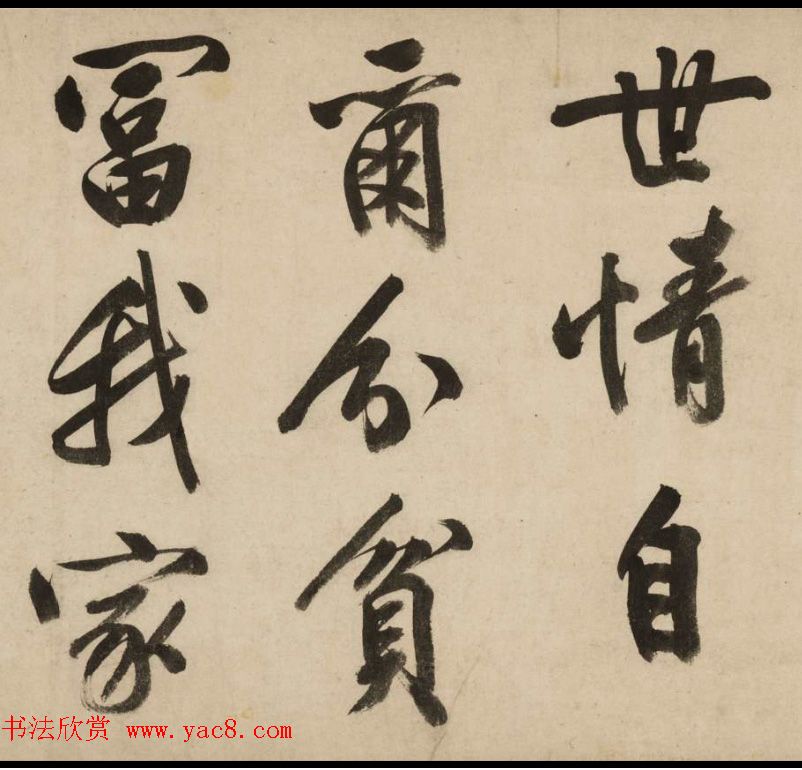 世情自
爾分貧
冨我家
书法欣赏 www.yac8.com